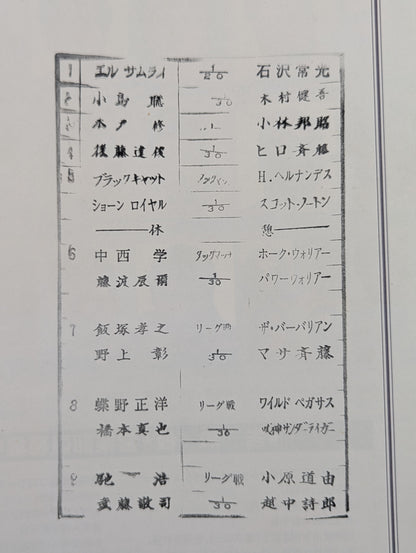 1 エル サムライ 1/20 石沢常光
2 小島 聡 1/30 木村健吾
3 木戸 修 小林邦昭
4 後藤達俊 1/30 ヒロ斉藤
5 ブラックキャット タッグマッチ H.ヘルナンデス
ショーン ロイヤル 1/30 スコット・ノートン
休 憩
6 中西 学 タッグマッチ ホーク・ウォリアー
藤波辰爾 1/30 パワーウォリアー
7 飯塚孝之 リーグ戦 ザ・バーバリアン
野上 彰 1/30 マサ斉藤
8 蝶野正洋 リーグ戦 ワイルド ペガサス
橋本真也 1/30 獣神サンダーライガー
9 馳 浩 リーグ戦 小原道由
武藤敬司 1/30 越中詩郎